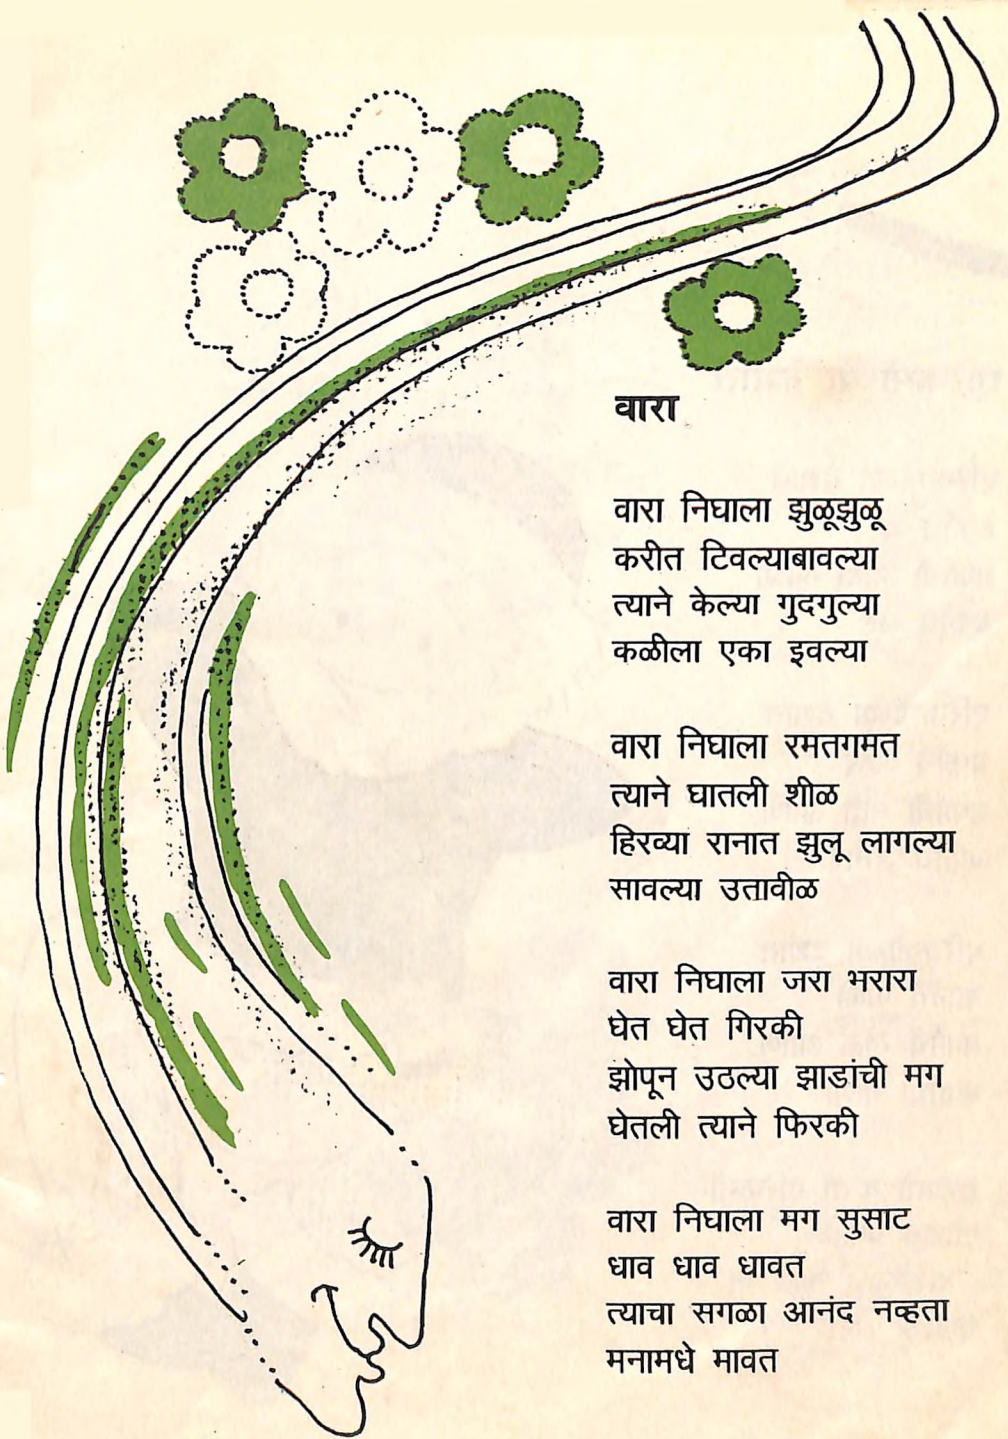 वारा
वारा निघाला झुळूझुळू
करीत टिवल्याबावल्या
त्याने केल्या गुदगुल्या
कळीला एका इवल्या
वारा निघाला रमतगमत
त्याने घातली शीळ
हिरव्या रानात झुलू लागल्या
सावल्या उतावीळ
वारा निघाला जरा भरारा
घेत घेत गिरकी
झोपून उठल्या झाडांची मग
घेतली त्याने फिरकी
वारा निघाला मग सुसाट
धाव धाव धावत
त्याचा सगळा आनंद नव्हता
मनामधे मावत